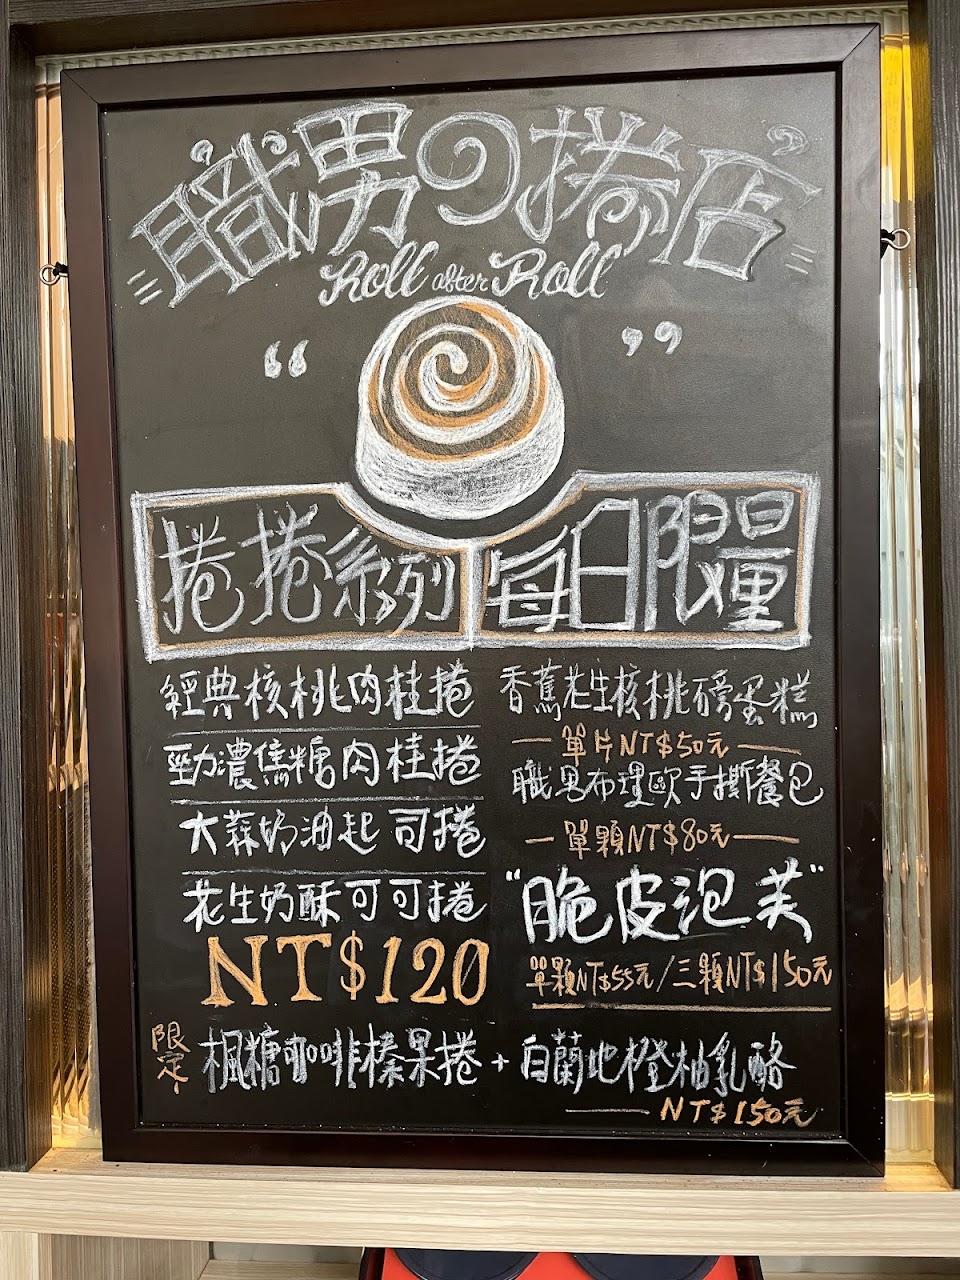 職男の捲店
Roll after Roll
捲捲系列
經典核桃肉桂捲
勁濃焦糖肉桂捲
大蒜奶油起司捲
花生奶酥可可捲
NT$120
每日限量
香蕉花生核桃磅蛋糕
單片NT$50元
職男布理歐手撕餐包
單顆NT$80元
"脆皮泡芙"
單顆NT$55元/三顆NT$150元
限定
楓糖咖啡榛果捲+白蘭地橙柚乳酪
NT$150元